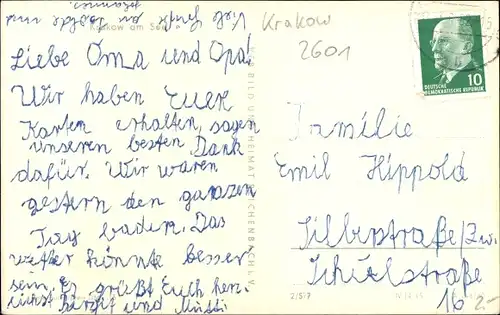 Viele Grüße an Tilde und
Johannes.
Krakow am See
Liebe Oma und Opa!
Wir haben Eure
Karten erhalten, sagen
unseren besten Dank
dafür. Wir waren
gestern den ganzen
Tag baden. Das
Wetter könnte besser
sein. Es grüßt Euch herz-
lichst und Mutti
BILD UND HEIMAT REICHENBACH I. V.
Krakow
2601
10
DEUTSCHE
DEMOKRATISCHE REPUBLIK
Familie
Emil Hippold
Silberstraße/Zw.
Schulstraße
16
2/517
2-